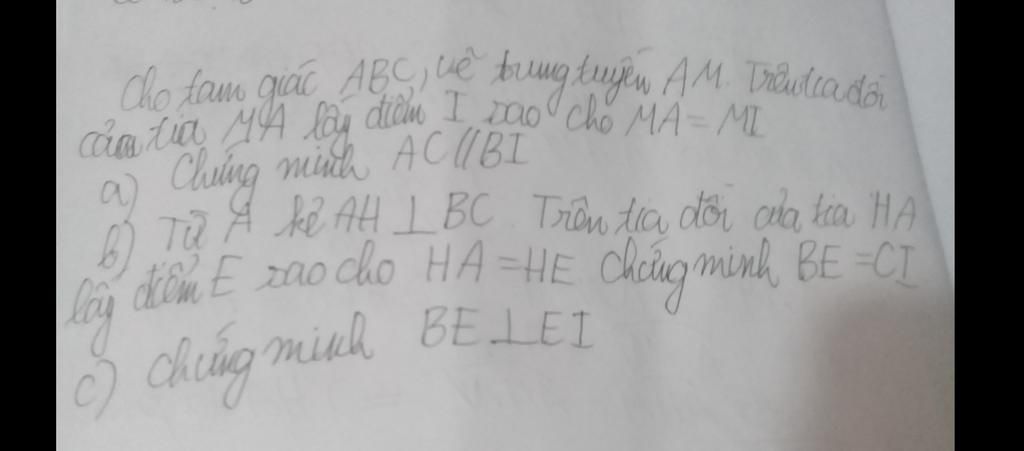 Cho tam giác ABC, vẽ trung tuyến AM. Trên tia đối
của tia MA lấy điểm I sao cho MA = MI
a) Chứng minh AC // BI
b) Từ A kẻ AH ⊥ BC Trên tia đối của tia HA
lấy điểm E sao cho HA = HE Chứng minh BE = CI
c) Chứng minh BE ⊥ EI